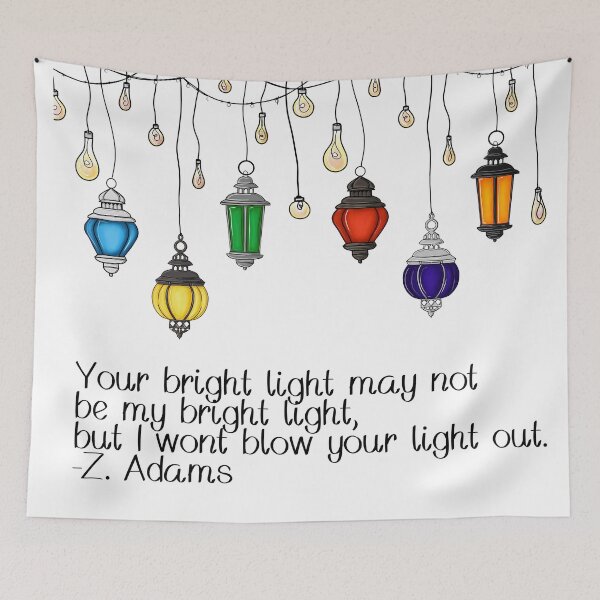 Your bright light may not
be my bright light,
but I wont blow your light out.
-Z. Adams